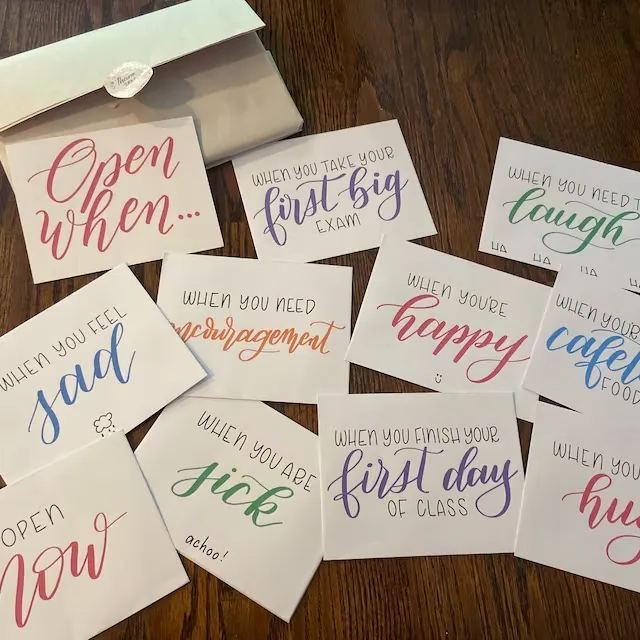 Open
when...
WHEN YOU TAKE YOUR
first big
EXAM
WHEN YOU NEED
laugh
HA HA HA HA
WHEN YOU FEEL
sad
WHEN YOU NEED
encouragement
WHEN YOU'RE
happy
WHEN
FOOD
OPEN
now
WHEN YOU ARE
sick
achoo!
WHEN YOU FINISH YOUR
first day
OF CLASS
WHEN YOU